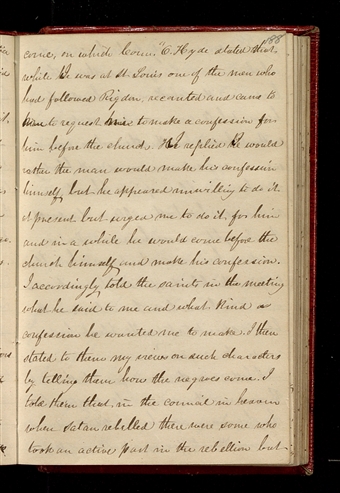 188
come, on which Coun. E. Hyde stated that
while he was at St. Louis one of the men who
had followed Rigdon, recanted and came to
him to request him to make a confession for
him before the church. He replied he would
rather the man would make his confession
himself, but he appeared unwilling to do it
at present but urged me to do it for him
and in a while he would come before the
church himself and make his confession.
I accordingly told the saints in the meeting
what he said to me and what kind a
confession he wanted me to make. I then
stated to them my views on such characters
by telling them how the negroes came. I
told them that in the council in heaven
when Satan rebelled there were some who
took an active part in the rebellion but